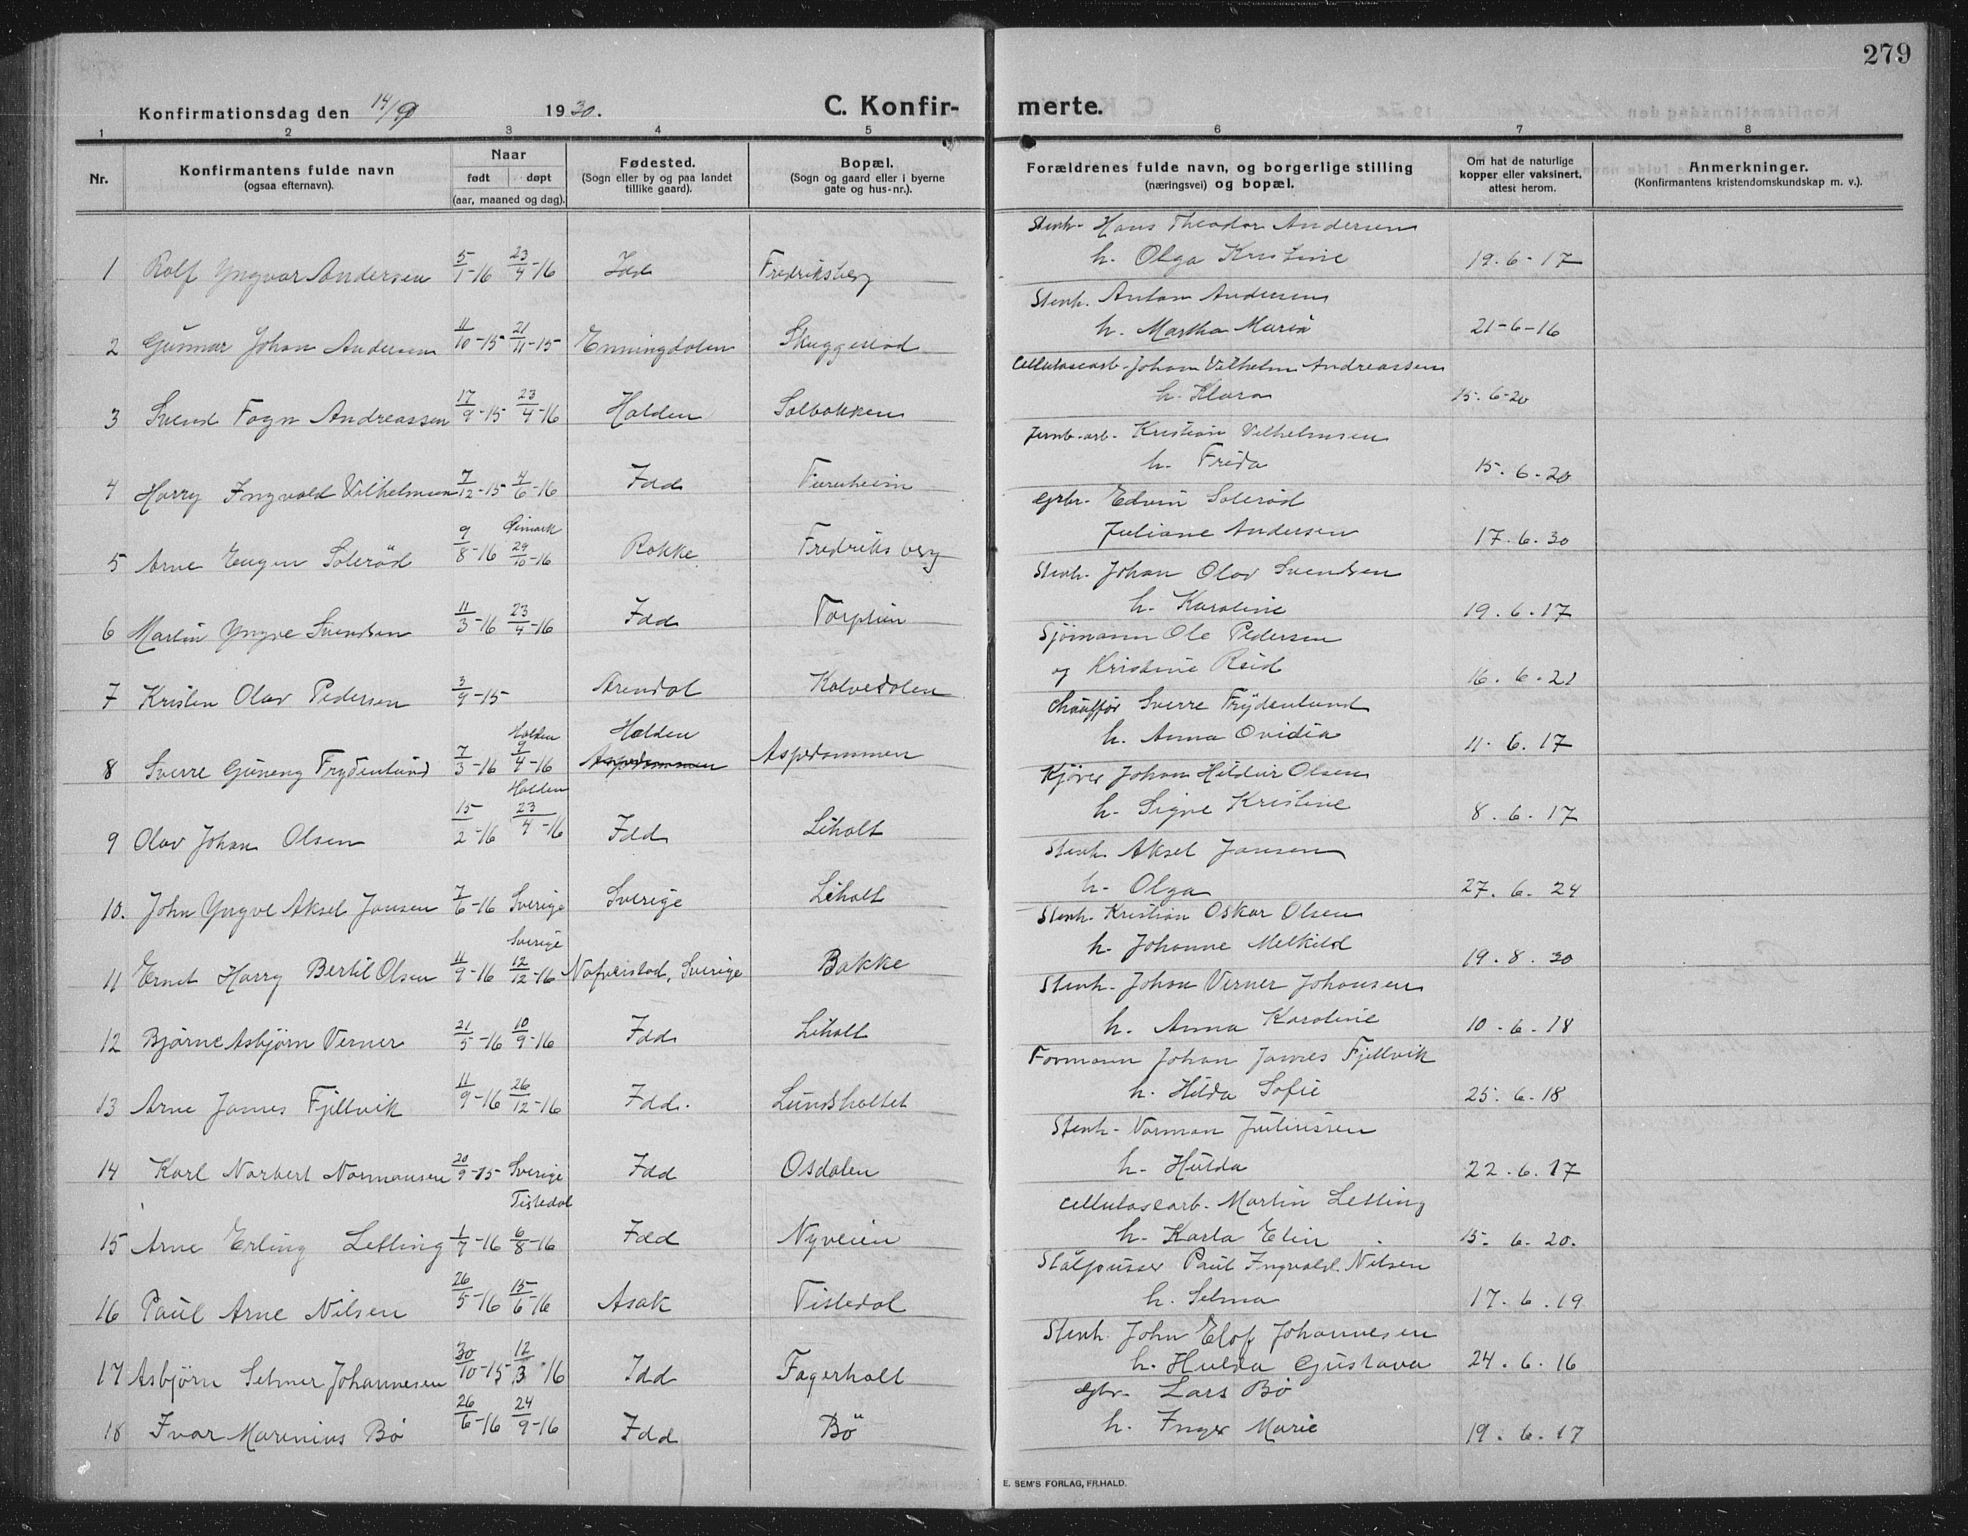 279
Konfirmationsdag den 14/9 1930. C. Konfirmerte.
1 2 3 4 5 6 7 8
Nr. Konfirmantens fulde navn (ogsaa efternavn). Naar født døpt (aar, maaned og dag). Fødested. (Sogn eller by og paa landet tillike gaard). Bopæl. (Sogn og gaard eller i byerne gate og hus-nr.). Forældrenes fulde navn, og borgerlige stilling (næringsvei) og bopæl. Om hat de naturlige kopper eller vaksinert, attest herom. Anmerkninger. (Konfirmantens kristendomskundskap m. v.).
1 Rolf Yngvar Andersen 5/1-16 23/4-16 Idd Fredriksberg Stenh. Hans Theodor Andersen
h. Olga Kristine 19.6-17
2 Gunnar Johan Andersen 11/10-15 21/11-15 Enningdalen Skuggerud Stenh. Anton Andersen
h. Martha Maria 21-6-16
3 Svend Fogn Andreassen 17/9-15 23/4-16 Halden Solbakken Cellulosearb. Johan Vilhelm Andreassen
h. Klara 15.6-20
4 Harry Ingvald Vilhelmsen 7/12-15 4/6-16 Idd Furuheim Jernb.arb. Kristian Vilhelmsen
h. Frida 15.6-20
5 Arne Eugen Solerød 9/8-16 Øimark 29/10-16 Rokke Fredriksberg Grbr. Edvin Solerød
Juliane Andersen 17.6.30
6 Martin Yngve Svendsen 11/3-16 23/4-16 Idd Torplin Stenh. Johan Olav Svendsen
h. Karoline 19.6.17
7 Kristen Olav Pedersen 3/9-15 Arendal Kalvedalen Sjømann Ole Pedersen
og Kristine Reid 16.6.21
8 Sverre Guneng Frydenlund 7/3-16 Halden 9/4-16 Halden Aspedammen Aspedammen Chauffør Sverre Frydenlund
h. Anna Ovidia 11.6.17
9 Olav Johan Olsen 15/2-16 Halden 23/4-16 Idd Liholt Kjører Johan Hildur Olsen
h. Signe Kristine 8.6.17
10. John Yngve Aksel Jansen 7/6-16 Sverige Sverige Liholt Stenh. Aksel Jansen
h. Olga 27.6.24
11 Ernst Harry Bertil Olsen 11/9-16 Sverige 12/12-16 Nafverstad, Sverige Bakke Stenh. Kristian Oskar Olsen
h. Johanne Melkild 19.8.30
12 Bjarne Asbjørn Verner 21/5-16 10/9-16 Idd Liholt Stenh. Johan Verner Johansen
h. Anna Karoline 10-6.18
13 Arne James Fjellvik 11/9-16 26/12-16 Idd. Lundsholtet Formann Johan James Fjellvik
h. Hilda Sofie 25.6.18
14 Karl Norbert Normansen 20/9-15 Sverige Idd Osdalen Stenh. Norman Juliussen
h. Hulda 22.6.17
15 Arne Erling Letting 1/7-16 Tistedal 6/8-16 Idd Nyveien Cellulosearb. Martin Letting
h. Karla Elin 15.6.20.
16 Paul Arne Nilsen 26/5-16 15/6-16 Asak Tistedal Stålpusser Paul Ingvald Nilsen
h. Selma 17.6.19
17 Asbjørn Selmer Johannesen 30/10-15 12/3-16 Idd Fagerholt Stenh. John Elof Johannesen
h. Hulda Gustava 24.6.16
18 Ivar Marenius Bø 26/6-16 24/9-16 Idd Bø Gbr. Lars Bø
h. Inger Marie 19.6.17
E. SEM'S FORLAG, FR.HALD.